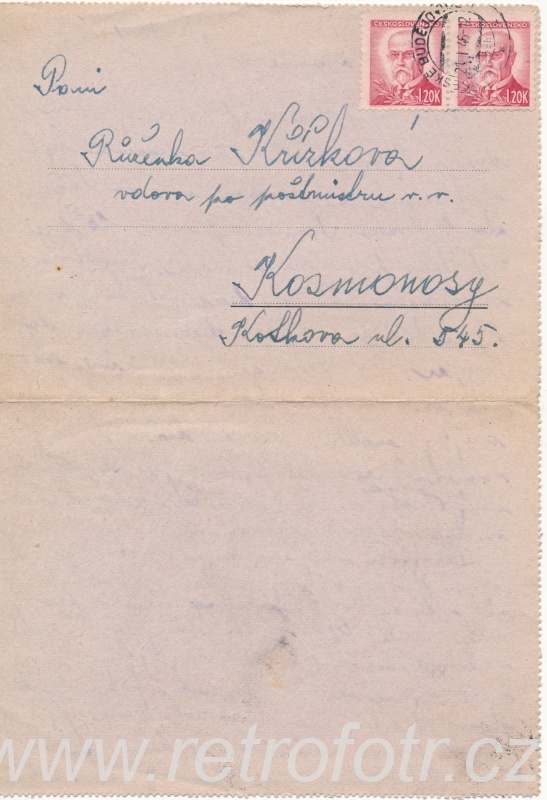 ČESKOSLOVENSKO ČESKOSLOVENSKO
1.20K 1.20K
Paní
Růženka Křížková
vdova po poštmistru v. v.
Kosmonosy
Koškova ul. 545.
www.retrofotr.cz